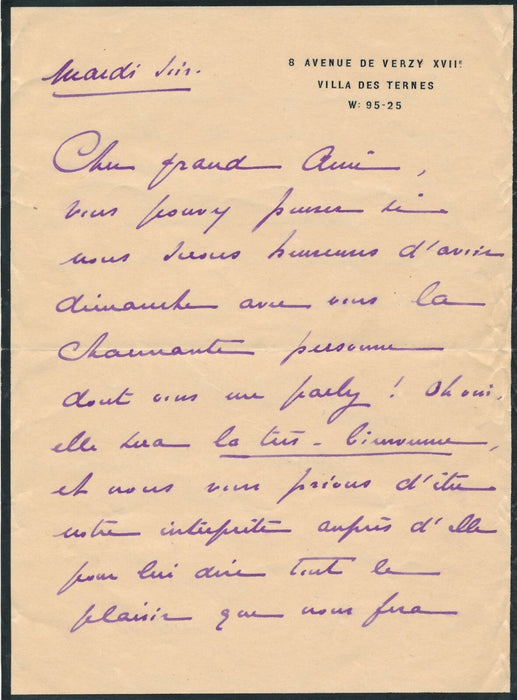 8 AVENUE DE VERZY XVIIe
VILLA DES TERNES
W: 95-25
Mardi soir.
Cher grand Ami,
vous pouvez penser si
nous serons heureuses d'avoir
dimanche avec vous la
Charmante personne
dont vous me parlez ! Oh oui,
elle sera la très-bienvenue,
et nous vous prions d'être
notre interprète auprès d'elle
pour lui dire tout le
plaisir que nous fera